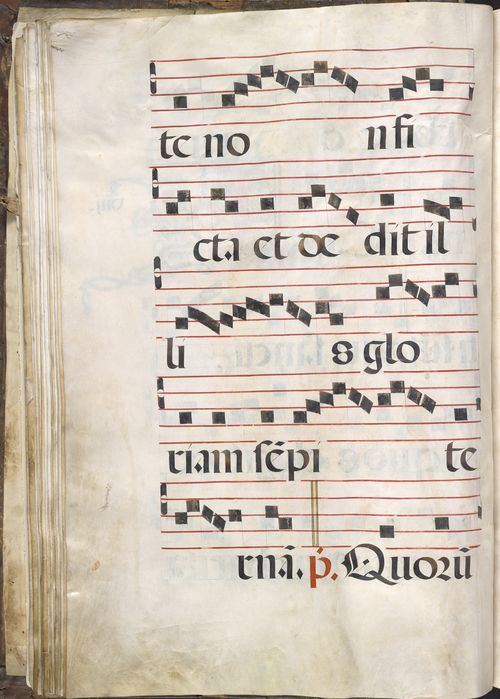 te no nfi
cta et de dit il
li s glo
riam sēpi te
rnā. p. Quorū